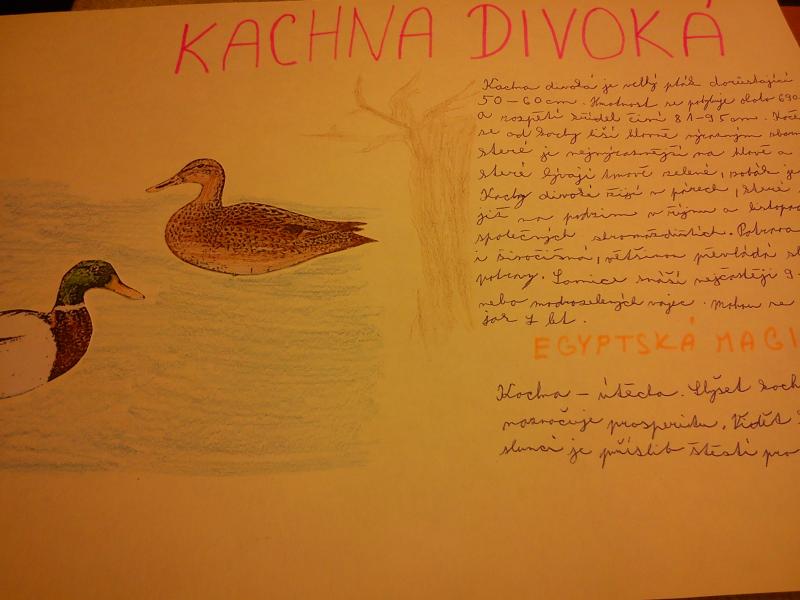 KACHNA DIVOKÁ
Kachna divoká je velký pták dorůstající
50-60cm. Hmotnost se pohybuje okolo 690
a rozpětí křídel činí 81-95cm.
se od kachny liší hlavně výrazným
které je nejvýraznější na hlavě a
které bývají tmavě zelené, zobák je
Kachny divoké žijí v párech, které
již na podzim v říjnu a listopadu
společných shromaždištích. Potrava
i živočišná, většinou převládá
potravy. Samice snáší nejčastěji 9-
nebo modrozelených vajec. Mohou se
let.
EGYPTSKÁ MAGI
Kachna - útěcha. Slyšet kach
naznačuje prosperitu. Vidět
slunci je příslib štěstí pro